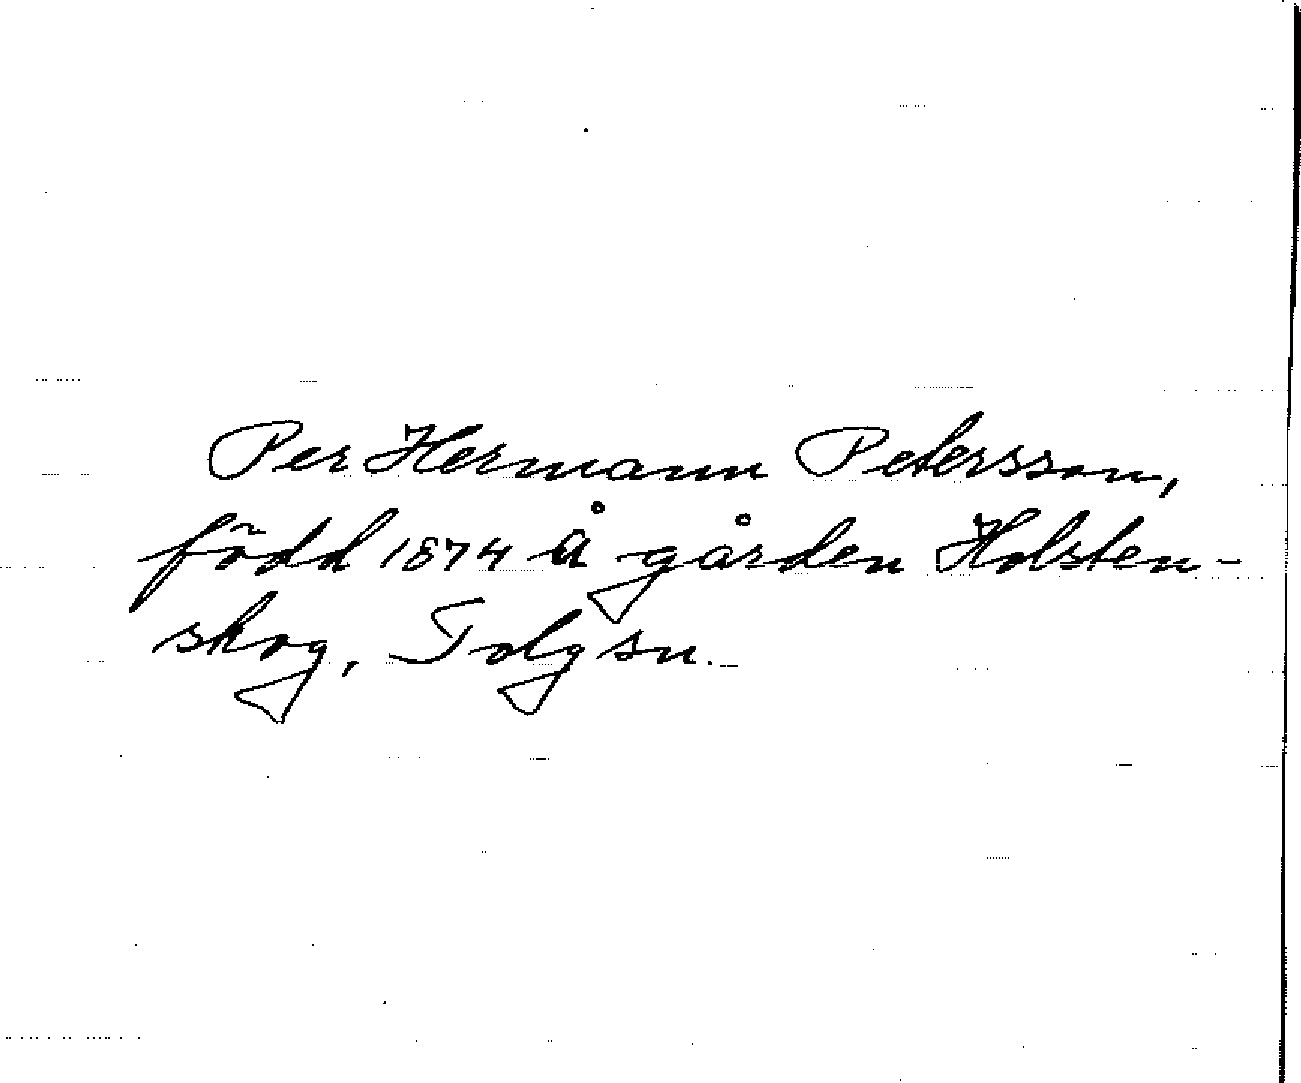 Per Hermann Petersson,
född 1874 å gården Holsten-
skog, Tolg sn.